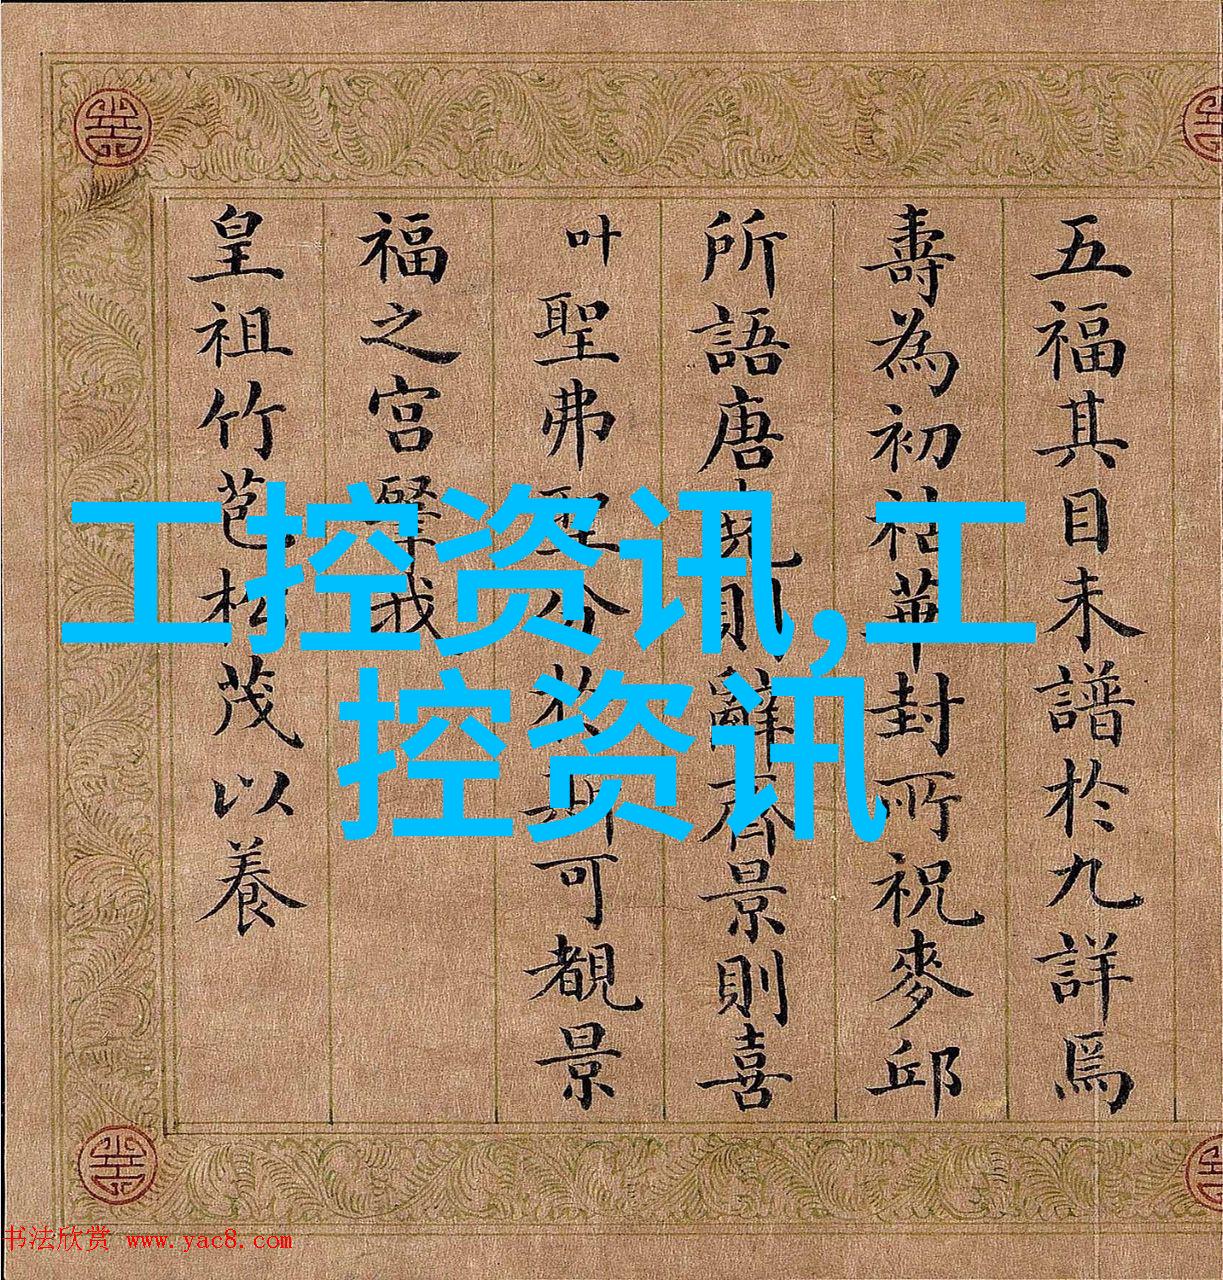 五福其目未譜於九詳爲
壽為初祜華封所祝麥邱
所語唐堯則辭齊景則喜
叶聖弗聖分可覩景
福之宮肇我
皇祖竹苞松茂以養
工控资讯,工
控资讯
书法欣赏 www.yac8.com